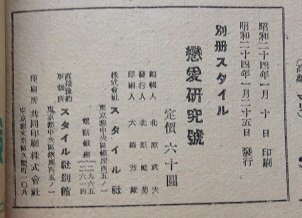 昭和二十四年一月十日 印刷
昭和二十四年一月二十五日 發行
別册スタイル
戀愛研究號
定價六十圓
編輯人 北原武夫
發行人 北原
印刷人 大橋芳雄
株式會社スタイル社
東京都中央區銀座西五ノ一
電話銀座
スタイル社別館
東京都中央區銀座西五ノ一
印刷所 共同印刷株式會社
東京都文京區久堅町一〇八